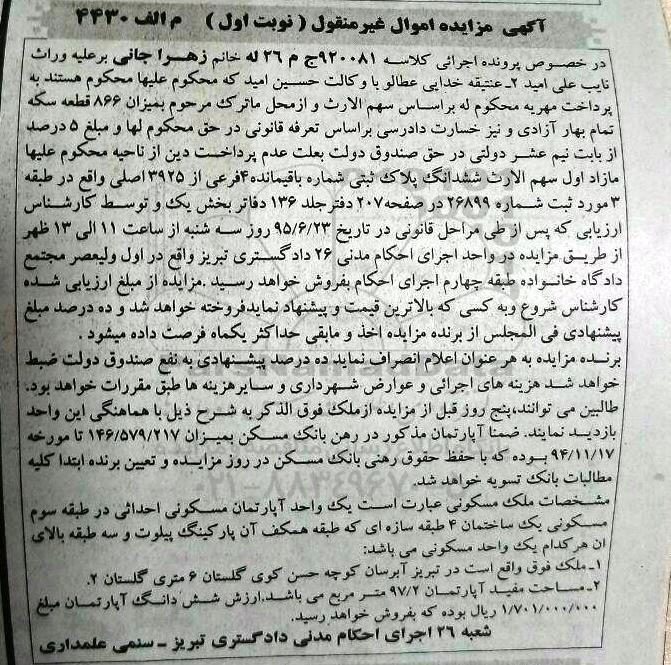 آگهی مزایده اموال غیرمنقول ( نوبت اول ) م الف ۴۴۳۰
در خصوص پرونده اجرائی کلاسه ۹۲۰۰۸۱ج م ۲۶ له خانم زهرا جانی برعلیه وراث
نایب علی امید ۲ـ عتیقه خدایی عطالو با وکالت حسین امید که محکوم علیها محکوم هستند به
پرداخت مهریه محکوم له براساس سهم الارث و ازمحل ماترک مرحوم بمیزان ۸۶۶ قطعه سکه
تمام بهار آزادی و نیز خسارت دادرسی براساس تعرفه قانونی در حق محکوم لها و مبلغ ۵ درصد
از بابت نیم عشر دولتی در حق صندوق دولت بعلت عدم پرداخست دین از ناحیه محکوم علیها
مازاد اول سهم الارث ششدانگ پلاک ثبتی شماره باقیمانده۴فرعی از ۳۹۲۵ اصلی واقع در طبقه
۳ مورد ثبت شماره ۲۶۸۹۹ در صفحه۲۰۷ دفترجلد ۱۳۶ دفاتر بخش یک و توسط کارشناس
ارزیابی که پس از طی مراحل قانونی در تاریخ ۹۵/۶/۲۳ روز سه شنبه از ساعت ۱۱ الی ۱۳ ظهر
از طریق مزایده در واحد اجرای احکام مدنی ۲۶ دادگستری تبریز واقع در اول ولیعصر مجتمع
دادگاه خانواده طبقه چهارم اجرای احکام بفروش خواهد رسید .مزایده از مبلغ ارزیابی شده
کارشناس شروع وبه کسی که بالاترین قیمت و پیشنهاد نمایدفروخته خواهد شد و ده درصد مبلغ
پیشنهادی فی المجلس از برنده مزایده اخذ و مابقی حداکثر یکماه فرصت داده میشود .
برنده مزایده به هر عنوان اعلام انصراف نماید ده درصد پیشنهادی به نفع صندوق دولت ضبط
خواهد شد هزینه های اجرائی و عوارض شهرداری و سایرهزینه ها طبق مقررات خواهد بود.
طالبین می توانند،پنج روز قبل از مزایده ازملک فوق الذکر به شرح ذیل با هماهنگی این واحد
بازدید نمایند. ضمنا آپارتمان مذکور در رهن بانک مسکن بمیزان ۱۴۶/۵۷۹/۲۱۷ تا مورخه
۹۴/۱۱/۱۷ بوده که با حفظ حقوق رهنی بانک مسکن در روز مزایده و تعیین برنده ابتدا کلیه
مطالبات بانک تسویه خواهد شد.
مشخصات ملک مسکونی عبارت است یک واحد آپارتمان مسکونی احداثی در طبقه سوم
مسکونی یک ساختمان ۴ طبقه سازه ای که طبقه همکف آن پارکینگ پیلوت و سه طبقه بالای
ان هرکدام یک واحد مسکونی می باشد:
۱ـ ملک فوق واقع است در تبریز آبرسان کوچه حسن کوی گلستان ۶ متری گلستان ۲.
۲ـ مساحت مفید آپارتمان ۹۷/۲ متر مربع می باشد.ارزش شش دانگ آپارتمان مبلغ
۱/۷۰۱/۰۰۰/۰۰۰ ریال بوده که بفروش خواهد رسید.
شعبه ۲۶ اجرای احکام مدنی دادگستری تبریز ـ سنمی علمداری